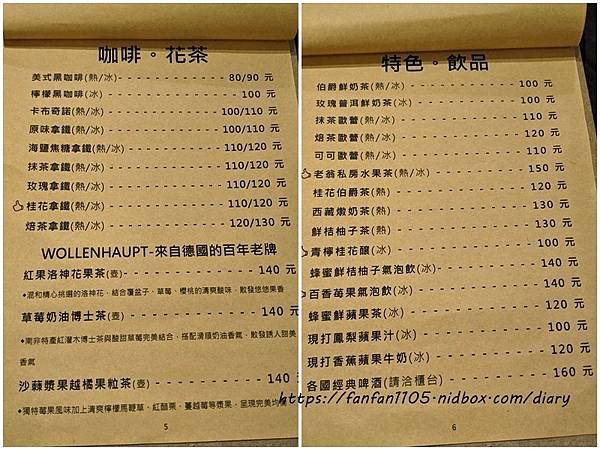 咖啡。花茶
美式黑咖啡(熱/冰)- - - - - - - - - - - - - - 80/90 元
檸檬黑咖啡(冰) - - - - - - - - - - - - - - - - - 100 元
卡布奇諾(熱/冰) - - - - - - - - - - - - - - 100/110 元
原味拿鐵(熱/冰) - - - - - - - - - - - - - - 100/110 元
海鹽焦糖拿鐵(熱/冰)- - - - - - - - - - - 110/120 元
抹茶拿鐵(熱/冰) - - - - - - - - - - - - - - 110/120 元
玫瑰拿鐵(熱/冰) - - - - - - - - - - - - - - 110/120 元
桂花拿鐵(熱/冰) - - - - - - - - - - - - - - 110/120 元
焙茶拿鐵(熱/冰) - - - - - - - - - - - - - - 120/130 元
WOLLENHAUPT-來自德國的百年老牌
紅果洛神花果茶(壺)- - - - - - - - - - - - - - - 140 元
◆混和精心挑選的洛神花、結合覆盆子、草莓、櫻桃的清爽酸味，散發悠悠果香
草莓奶油博士茶(壺) - - - - - - - - - - - - - - - 140 元
◆南非特產紅灌木博士茶與酸甜草莓完美結合、搭配滑順奶油香氣，散發誘人甜美
香氣
沙棘漿果越橘果粒茶(壺) - - - - - - - - - - - - 140
◆獨特莓果風味加上清爽檸檬馬鞭草、紅醋栗、蔓越莓等漿果，呈現完美均
5
特色。飲品
伯爵鮮奶茶(熱/冰) - - - - - - - - - - - - - - - - 100 元
玫瑰普洱鮮奶茶(冰) - - - - - - - - - - - - - - - 100 元
抹茶歐蕾(熱/冰) - - - - - - - - - - - - - - - - - 110 元
焙茶歐蕾(熱/冰) - - - - - - - - - - - - - - - - - 120 元
可可歐蕾(熱/冰) - - - - - - - - - - - - - - - - - 110 元
老翁私房水果茶(熱/冰) - - - - - - - - - - - - - 150 元
桂花伯爵茶(熱) - - - - - - - - - - - - - - - - - - 120 元
西藏燉奶茶(熱) - - - - - - - - - - - - - - - - - - 130 元
鮮桔柚子茶(熱) - - - - - - - - - - - - - - - - - - 130 元
青檸桂花釀(冰) - - - - - - - - - - - - - - - - - - 100 元
蜂蜜鮮桔柚子氣泡飲(冰) - - - - - - - - - - - - 140 元
百香莓果氣泡飲(冰) - - - - - - - - - - - - - - - 140 元
蜂蜜鮮蘋果茶(冰) - - - - - - - - - - - - - - - - 120 元
現打鳳梨蘋果汁(冰) - - - - - - - - - - - - - - - 100 元
現打香蕉蘋果牛奶(冰) - - - - - - - - - - - - - 120 元
各國經典啤酒(請洽櫃台) - - - - - - - - - - - - 160 元
https://fanfan1105.nidbox.com/diary
6